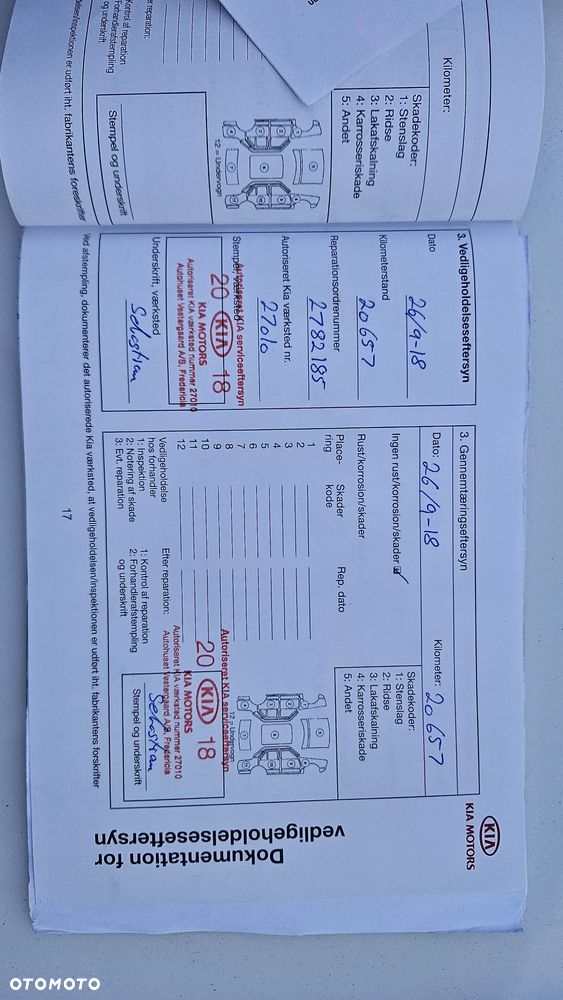 KIA
KIA MOTORS
Dokumentation for
vedligeholdelseseftersyn
3. Vedligeholdelseseftersyn
Dato
26/9-18
Kilometerstand
20657
Reparationsordrenummer
2782185
Autoriseret Kia værksted nr.
27010
Stempel, værksted
Autoriseret KIA serviceeftersyn
20 KIA 18
KIA MOTORS
Autoriseret KIA værksted nummer 27010
Autohuset Vestergaard A/S, Fredericia
Underskrift, værksted
Sebastian
3. Gennemtæringseftersyn
Dato: 26/9-18
Kilometer: 20657
Ingen rust/korrosion/skader
Rust/korrosion/skader
Place-
ring
Skader
kode
Rep. dato
1
2
3
4
5
6
7
8
9
10
11
12
Skadekoder:
1: Stenslag
2: Ridse
3: Lakafskalning
4: Karrosseriskade
5: Andet
12 = Undervogn
Vedligeholdelse
hos forhandler
1: Inspektion
2: Notering af skade
3: Evt. reparation
Efter reparation:
1: Kontrol af reparation
2: Forhandlerafstempling
og underskrift
Autoriseret KIA serviceeftersyn
20 KIA 18
KIA MOTORS
Autoriseret KIA værksted nummer 27010
Autohuset Vestergaard A/S, Fredericia
Sebastian
Stempel og underskrift
Ved afstempling, dokumenterer det autoriserede Kia værksted, at vedligeholdelsen/inspektionen er udført iht. fabrikantens forskrifter
17
Kilometer:
Skadekoder:
1: Stenslag
2: Ridse
3: Lakafskalning
4: Karrosseriskade
5: Andet
12 = Undervogn
Stempel og underskrift
er reparation:
Kontrol af reparation
Forhandlerafstempling
og underskrift
delsen/inspektionen er udført iht. fabrikantens forskrifter
OTOMOTO